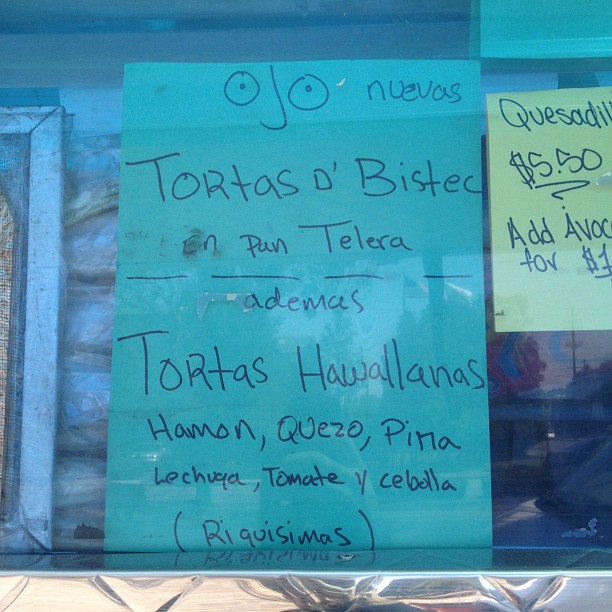 OJO nuevas
TORtas D' Bistec
En pan Telera
ademas
TORtas Hawallanas
Hamon, Quezo, Piña
Lechuga, Tomate y cebolla
(Riquisimas)
Quesadill
$5.50
Add Avoc
for $1